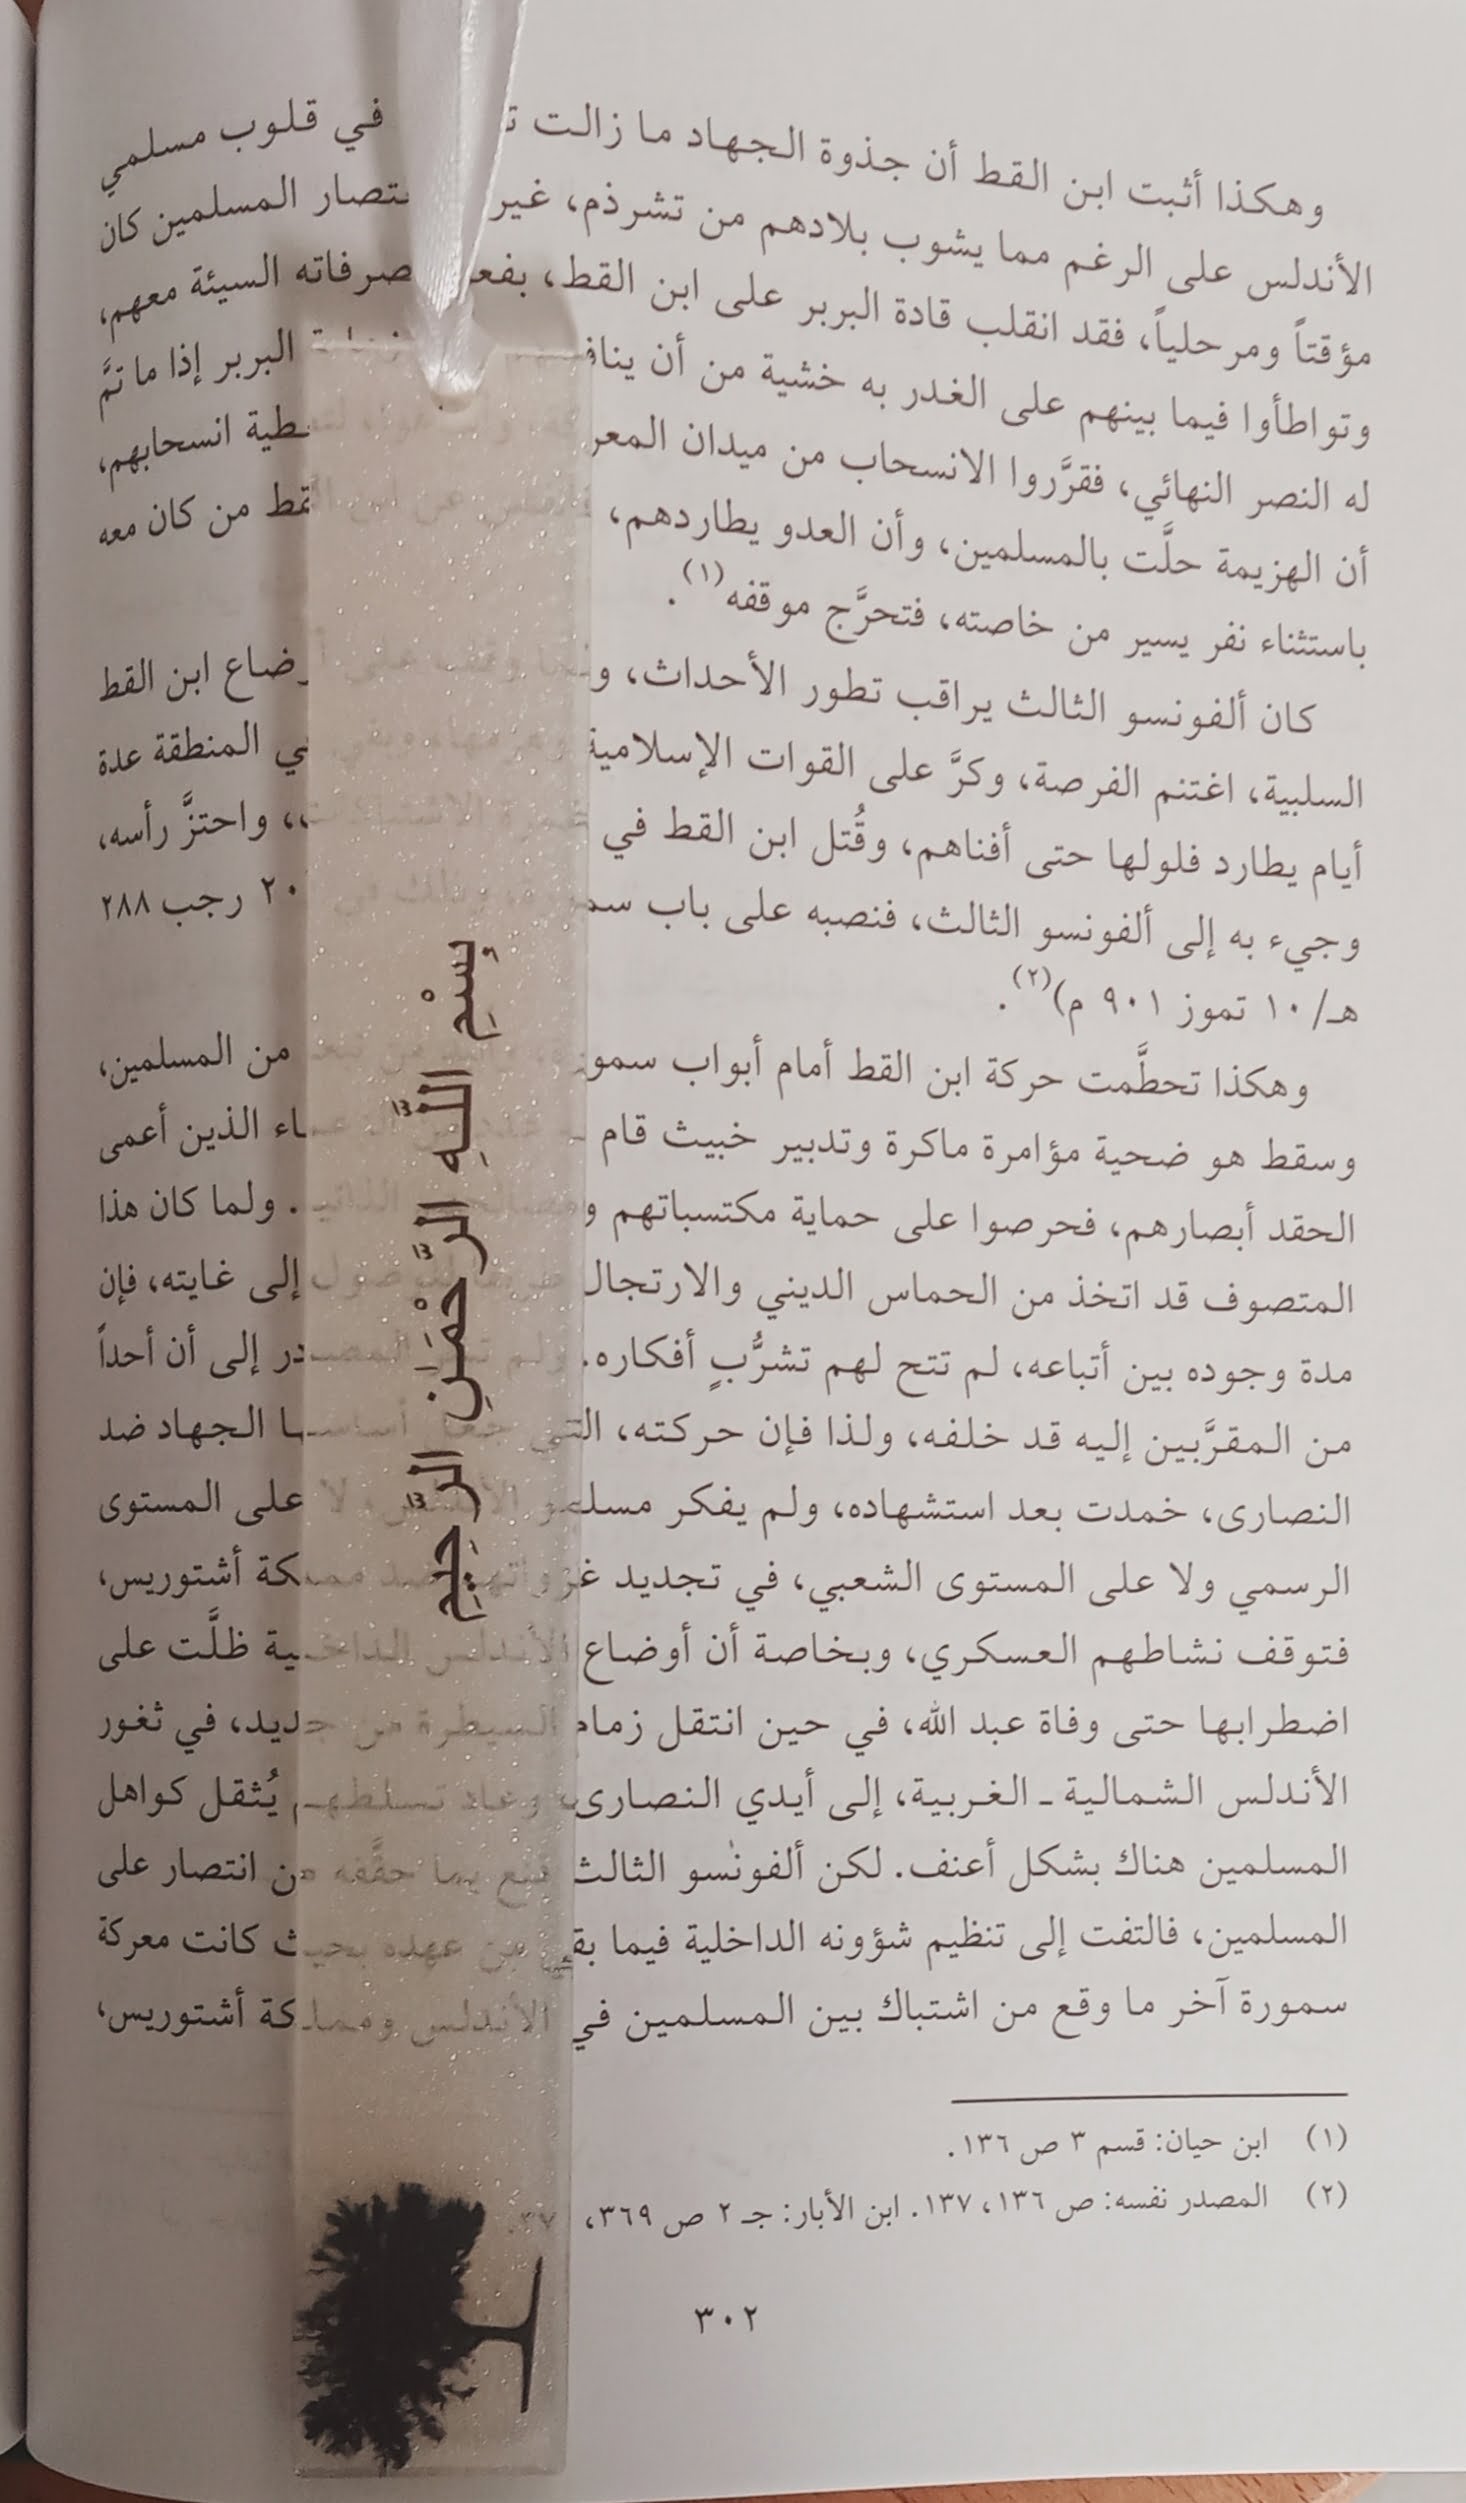 وهكذا أثبت ابن القط أن جذوة الجهاد ما زالت في قلوب مسلمي
الأندلس على الرغم مما يشوب بلادهم من تشرذم، غير انتصار المسلمين كان
مؤقتاً ومرحلياً، فقد انقلب قادة البربر على ابن القط، بفعل تصرفاته السيئة معهم،
وتواطأوا فيما بينهم على الغدر به خشية من أن البربر إذا ما تمَّ
له النصر النهائي، فقرَّروا الانسحاب من ميدان لتغطية انسحابهم،
أن الهزيمة حلَّت بالمسلمين، وأن العدو يطاردهم، عن ابن القط من كان معه
باستثناء نفر يسير من خاصته، فتحرَّج موقفه(١).
كان ألفونسو الثالث يراقب تطور الأحداث، ولما وقف على أوضاع ابن القط
السلبية، اغتنم الفرصة، وكرَّ على القوات الإسلامية في المنطقة عدة
أيام يطارد فلولها حتى أفناهم، وقُتل ابن القط في واحتزَّ رأسه،
وجيء به إلى ألفونسو الثالث، فنصبه على باب سمورة، وذلك في ٢٠ رجب ٢٨٨
هـ/ ١٠ تموز ٩٠١ م)(٢).
وهكذا تحطَّمت حركة ابن القط أمام أبواب سمورة، من المسلمين،
وسقط هو ضحية مؤامرة ماكرة وتدبير خبيث قام الزعماء الذين أعمى
الحقد أبصارهم، فحرصوا على حماية مكتسباتهم ومصالحهم الذاتية. ولما كان هذا
المتصوف قد اتخذ من الحماس الديني والارتجال للوصول إلى غايته، فإن
مدة وجوده بين أتباعه، لم تتح لهم تشرُّبٍ أفكاره. ولم تشر المصادر إلى أن أحداً
من المقرَّبين إليه قد خلفه، ولذا فإن حركته، التي جعل أساسها الجهاد ضد
النصارى، خمدت بعد استشهاده، ولم يفكر مسلمو الأندلس ولا على المستوى
الرسمي ولا على المستوى الشعبي، في تجديد غزواتهم ضد مملكة أشتوريس،
فتوقف نشاطهم العسكري، وبخاصة أن أوضاع الأندلس الداخلية ظلَّت على
اضطرابها حتى وفاة عبد الله، في حين انتقل زمام السيطرة من جديد، في ثغور
الأندلس الشمالية ـ الغربية، إلى أيدي النصارى، وعاد تسلطهم يُثقل كواهل
المسلمين هناك بشكل أعنف. لكن ألفونسو الثالث قنع بما حقَّقه من انتصار على
المسلمين، فالتفت إلى تنظيم شؤونه الداخلية فيما بقي من عهده بحيث كانت معركة
سمورة آخر ما وقع من اشتباك بين المسلمين في الأندلس ومملكة أشتوريس،
(١) ابن حيان: قسم ٣ ص ١٣٦.
(٢) المصدر نفسه: ص ١٣٦، ١٣٧. ابن الأبار: جـ ٢ ص ٣٦٩،
٣٠٢
بِسْمِ اللَّهِ الرَّحْمَنِ الرَّحِيمِ